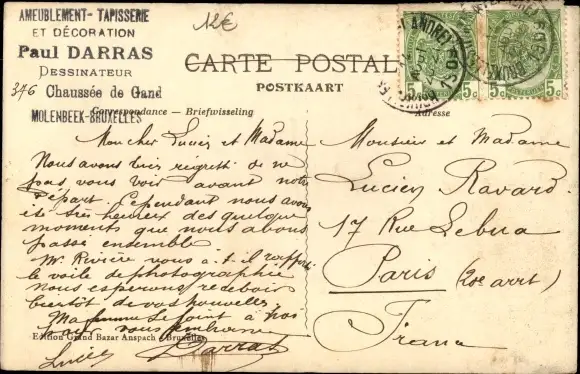 AMEUBLEMENT - TAPISSERIE
ET DÉCORATION
Paul DARRAS
DESSINATEUR
376 Chaussée de Gand
MOLENBEEK-BRUXELLES
12€
CARTE POSTALE
POSTKAART
Correspondance — Briefwisseling
Adresse
5c 5c 5c 5c
Mon cher Lucien et Madame
Nous avons très regretté de ne
pas vous voir avant notre
départ. Cependant nous avons
été très heureux des quelques
moments que nous avons
passé ensemble
Mr Rivière vous a-t-il rapporté
le voile de photographie
nous esperons recevoir
bientôt de vos nouvelles
Ma femme se joint à moi
pour vous embrasser
Lucien Darras
Edition Grand Bazar Anspach, Bruxelles
Monsieur et Madame
Lucien Ravard
17 Rue Lebua
Paris (20e arrt)
France